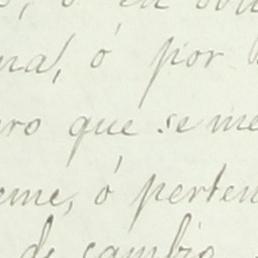 ó en
na, ó por
ro que se me
eme, ó perten
de cambio